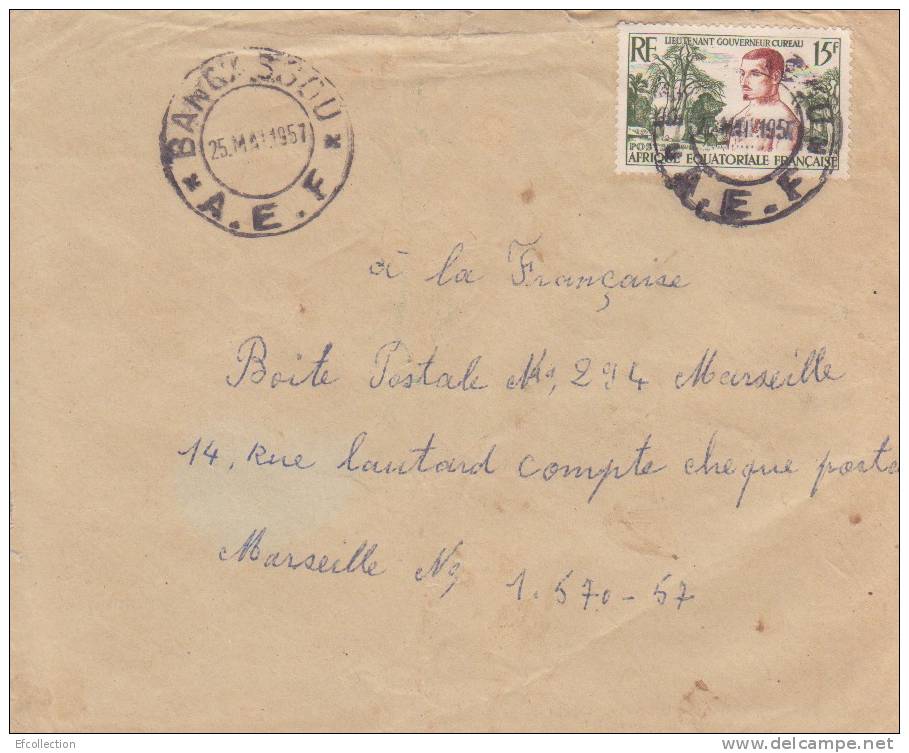 BANGASSOU
25.MAI.1957
A.E.F
RF LIEUTENANT GOUVERNEUR CUREAU 15F
POSTES
AFRIQUE EQUATORIALE FRANÇAISE
MAI 1957
A.E.F
à la Française
Boite Postale No, 294 Marseille
14, Rue lautard compte cheque posta
Marseille No, 1.570-57
Efcollection
www.delcampe.net